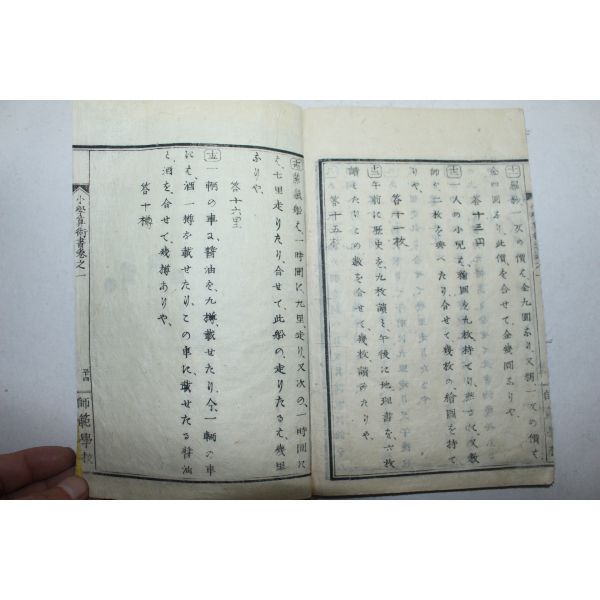 一次の價は、金九圓なり、又一次の價は、
金四圓なり、此價を、合せて、金幾圓なりや、
答十三圓
一人の小児は、繪圖を九枚持てり、
師より二枚を與へたり、合せて、幾枚の繪圖を持て
りや、
答十一枚
午前に歴史を、九枚讀み、午後に地理書を、六枚
讀みたり、この數を合せて、幾枚讀みたりや、
答十五枚
蒸氣船は、一時間に、九里、走り、又次の、一時間に
は、七里走りたり、合せて、此船の、走りたるは、幾里
なりや、
答十六里
一輌の車に、醤油を、九樽載せたり、今一輌の車
にも、酒一樽を載せたり、この車に、載せたる、醤油
と、酒を、合せて、幾樽ありや、
答十樽
小學算術書卷之一
師範學校